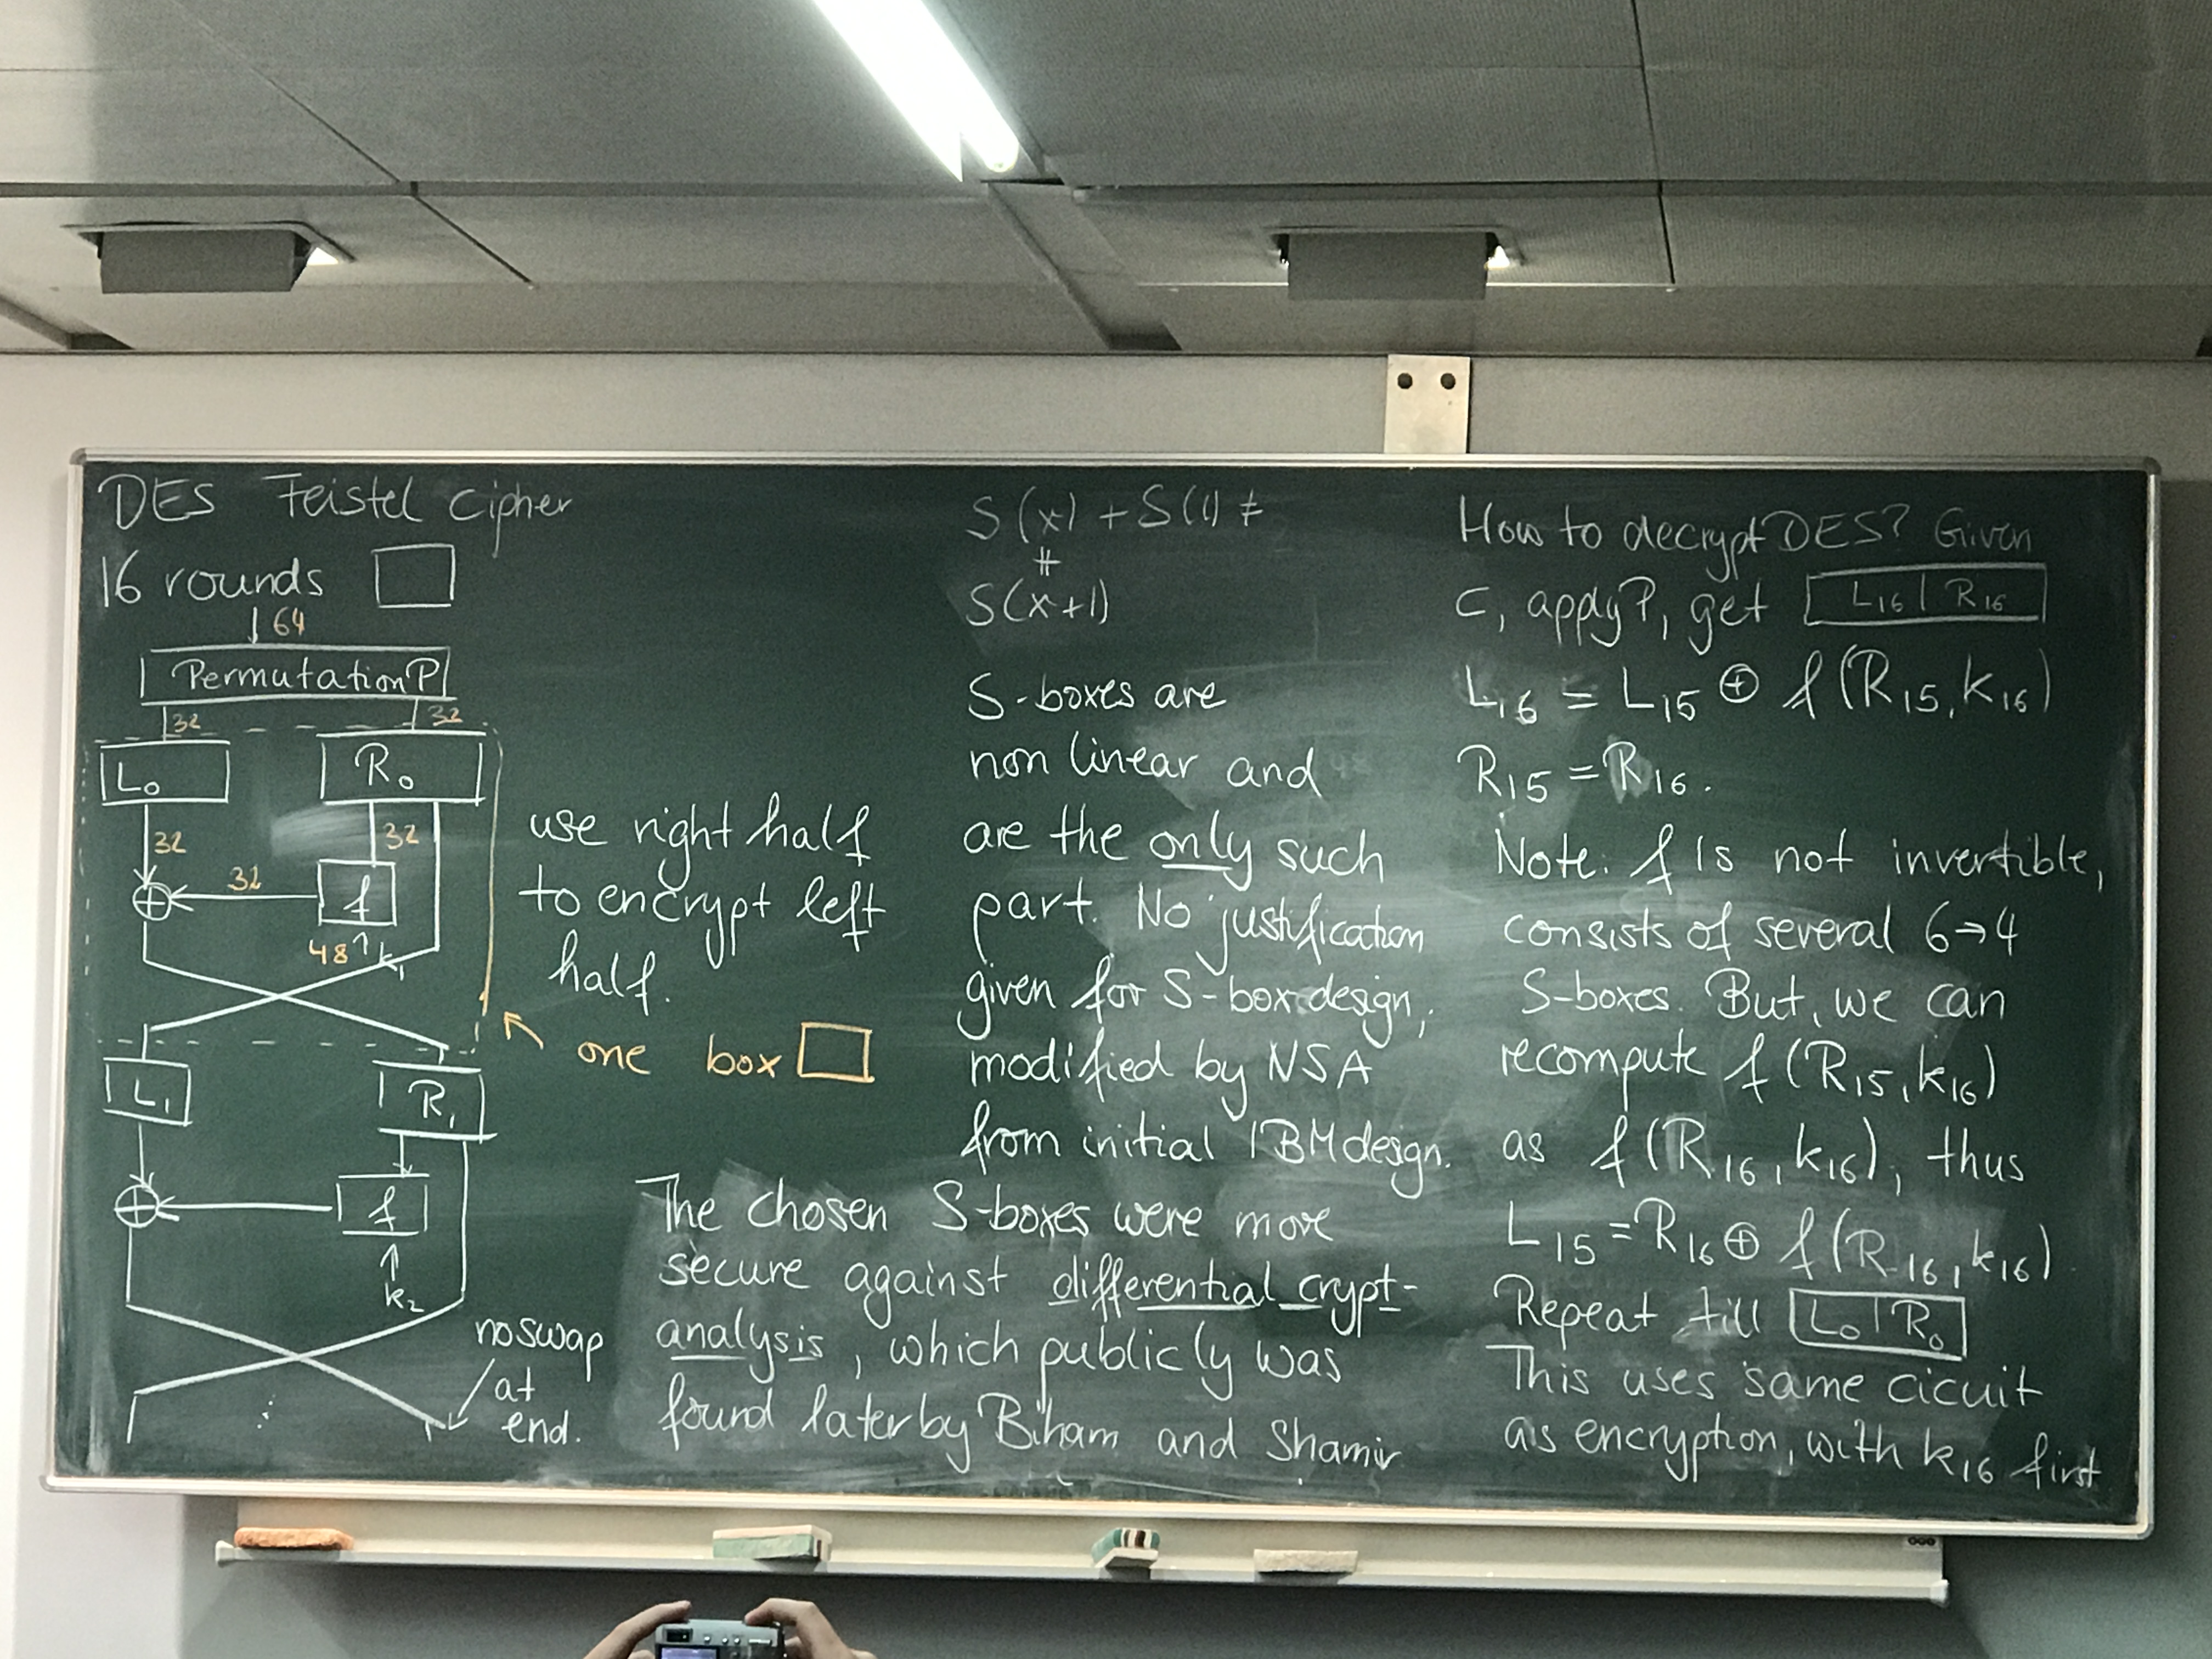 DES Feistel Cipher
16 rounds
64
Permutation P
32 32
L₀ R₀
32 32
32 f
48 k₁
use right half
to encrypt left
half.
one box
L₁ R₁
f
k₂
no swap
at
end.
S(x) + S(1) ≠
≠
S(x+1)
S-boxes are
non linear and
are the only such
part. No justification
given for S-box design,
modified by NSA
from initial IBM design.
The chosen S-boxes were more
secure against differential crypt-
analysis, which publicly was
found later by Biham and Shamir
How to decrypt DES? Given
C, apply P, get L₁₆ | R₁₆
L₁₆ = L₁₅ ⊕ f(R₁₅, k₁₆)
R₁₅ = R₁₆.
Note: f is not invertible,
consists of several 6→4
S-boxes. But, we can
recompute f(R₁₅, k₁₆)
as f(R₁₆, k₁₆), thus
L₁₅ = R₁₆ ⊕ f(R₁₆, k₁₆).
Repeat till L₀ | R₀
This uses same cicuit
as encryption, with k₁₆ first